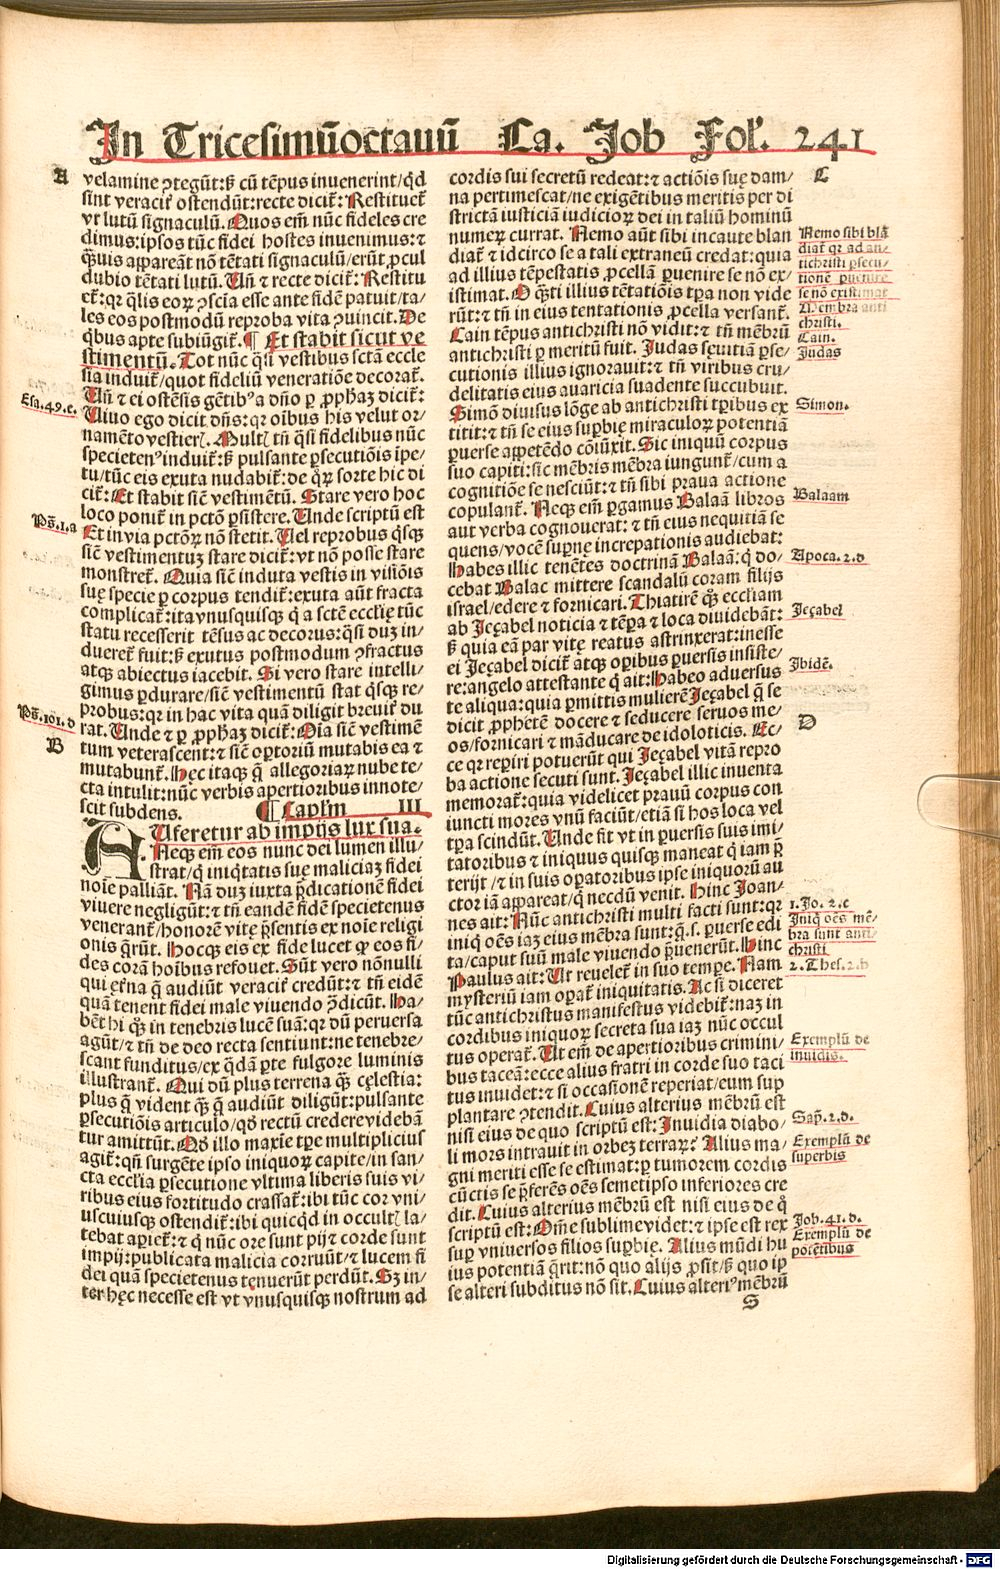 In Tricesimūoctauū Ca. Job Fol'. 241
A
velamine ꝯtegūt:ꝫ cū tēpus inuenerint/qd
sint veracit̄ ostendūt:recte dicit̄: Restituet̄
vt lutū signaculū. Quos em̄ nūc fideles cre
dimus:ipsos tūc fidei hostes inuenimus:⁊
q̄uis appareāt nō tētati signaculū/erūt ꝓcul
dubio tētati lutū. Un̄ ⁊ recte dicit̄: Restitu
et̄:qr q̄lis eoꝝ ꝯscia esse ante fidē patuit/ta/
les eos postmodū reproba vita ꝯuincit. De
qbus apte subiūgit̄. ¶ Et stabit sicut ve
stimentū. Tot nūc q̄si vestibus sctā eccle
sia induit̄/quot fideliū veneratiōe decorat̄.
Un̄ ⁊ ei ostēsis gētibꝰa dn̄o ꝑ ꝓphaꝫ dicit̄:
Esa.49.c.
Uiuo ego dicit dn̄s:qr oībus his velut or/
namēto vestieri. Multi tn̄ q̄si fidelibus nūc
specietenꝰinduit̄:ꝫ pulsante ꝑsecutiōis īpe/
tu/tūc eis exuta nudabit̄:de qꝝ sorte hic di
cit̄:Et stabit sic̄ vestimētū. Stare vero hoc
loco ponit̄ in pctō ꝑsistere. Unde scriptū est
Ps̄.1.a
Et in via pctōꝝ nō stetit. Uel reprobus q̄sqꝫ
sic̄ vestimentuꝫ stare dicit̄:vt nō posse stare
monstret̄. Quia sic̄ induta vestis in visiōis
suę specie ꝑ corpus tendit̄:exuta aūt fracta
complicat̄:ita vnusquisqꝫ q a sctē ecclię tūc
statu recesserit tēsus ac decorus:q̄si duꝫ in/
dueret̄ fuit:ꝫ exutus postmodum ꝯfractus
atqꝫ abiectus iacebit. Si vero stare intelli/
gimus ꝑdurare/sic̄ vestimentū stat q̄sqꝫ re/
Ps̄.101.d
probus:qr in hac vita quā diligit breuit̄ du
rat. Unde ⁊ ꝑ ꝓphaꝫ dicit̄:Oīa sic̄ vestimē
B
tum veterascent:⁊ sic̄ oꝑtoriū mutabis ea ⁊
mutabunt̄. Hęc itaqꝫ q̄ allegoriaꝝ nube te/
cta intulit:nūc verbis apertioribus innote/
scit subdens. ¶ Caplm III
AUferetur ab impijs lux sua.
Neqꝫ em̄ eos nunc dei lumen illu/
strat/q iniq̄tatis suę maliciaꝫ fidei
noīe palliāt. Nā duꝫ iuxta p̄dicationē fidei
viuere negligūt:⁊ tn̄ eandē fidē specietenus
venerant̄/honorē vitę p̄sentis ex noīe religi
onis q̄rūt. Hocqꝫ eis ex fide lucet qꝫ eos fi/
des corā hoībus refouet. Sūt vero nōnulli
qui ęt̄na q̄ audiūt veracit̄ credūt:⁊ tn̄ eidē
quā tenent fidei male viuendo ꝯ̄dicūt. Ha/
bēt hi qꝫ in tenebris lucē suā:qr dū peruersa
agūt/⁊ tn̄ de deo recta sentiunt:ne tenebre/
scant funditus/ex qdā ꝑte fulgore luminis
illustrant̄. Qui dū plus terrena qꝫ cęlestia:
plus q̄ vident qꝫ q̄ audiūt diligūt:pulsante
ꝑsecutiōis articulo/qđ rectū credere videbā
tur amittūt. Qđ illo maxīe tꝑe multiplicius
agit̄:qn̄ surgēte ipso iniquoꝝ capite/in san/
cta ecclīa ꝑsecutione vltima liberis suis vi/
ribus eius fortitudo crassat̄:ibi tūc cor vni/
uscuiusqꝫ ostendit̄:ibi quicqd in occulti la/
tebat aꝑiet̄:⁊ q nūc ore sunt pij⁊ corde sunt
impij:publicata malicia corruūt/⁊ lucem fi
dei quā specietenus tenuerūt perdūt. Sꝫ in/
ter hęc necesse est vt vnusquisqꝫ nostrum ad
C
cordis sui secretū redeat:⁊ actiōis suę dam/
na pertimescat/ne exigētibus meritis per di
strictā iusticiā iudicioꝝ dei in taliū hominū
numeꝝ currat. Nemo aūt sibi incaute blan
diat̄ ⁊ idcirco se a tali extraneū credat:quia
ad illius tēpestatis ꝓcellā ꝑuenire se nō ex/
istimat. O q̄ti illius tētatiōis tꝑa non vide
rūt:⁊ tn̄ in eius tentationis ꝓcella versant̄.
Cain tēpus antichristi nō vidit:⁊ tn̄ mēbrū
antichristi ꝑ meritū fuit. Judas sęuitiā ꝑse/
cutionis illius ignorauit:⁊ tn̄ viribus cru/
delitatis eius auaricia suadente succubuit.
Simō diuisus lōge ab antichristi tꝑibus ex
titit:⁊ tn̄ se eius suꝑbię miraculoꝝ potentiā
ꝑuerse appetēdo cōiūxit. Sic iniquū corpus
suo capiti:sic mēbris mēbra iungunt̄/cum a
cognitiōe se nesciūt:⁊ tn̄ sibi praua actione
copulant̄. Neqꝫ em̄ ꝑgamus Balaā libros
aut verba cognouerat:⁊ tn̄ eius nequitiā se
quens/vocē suꝑnę increpationis audiebat:
Habes illic tenētes doctrinā Balaā:q do/
cebat Balac mittere scandalū coram filijs
israel/edere ⁊ fornicari. Thiatirē qꝫ eccliam
ab Jeçabel noticia ⁊ tēꝑa ⁊ loca diuidebāt:
ꝫ quia eā par vitę reatus astrinxerat:inesse
ei Jeçabel dicit̄ atqꝫ oꝑibus ꝑuersis insiste/
re:angelo attestante q ait:Habeo aduersus
te aliqua:quia ꝑmittis mulierē Jeçabel q̄ se
dicit ꝓphetē docere ⁊ seducere seruos me/
os/fornicari ⁊ māducare de idoloticis. Ec/
ce qr reꝑiri potuerūt qui Jeçabel vitā repro
ba actione secuti sunt. Jeçabel illic inuenta
memorat̄:quia videlicet prauū corpus con
iuncti mores vnū faciūt/etiā si hos loca vel
tꝑa scindūt. Unde fit vt in ꝑuersis suis imi/
tatoribus ⁊ iniquus quisqꝫ maneat q iam p̄
terijt/⁊ in suis oꝑatoribus ipse iniquorū au
ctor iā appareat/q necdū venit. Hinc Joan/
nes ait:Nūc antichristi multi facti sunt:qr
iniq oēs iaꝫ eius mēbra sunt:q̄.s. ꝑuerse edi
ta/caput suū male viuendo p̄uenerūt. Hinc
Paulus ait:Ut reuelet̄ in suo temꝑe. Nam
mysteriū iam oꝑat̄ iniquitatis. Ac si diceret
tūc antichristus manifestus videbit̄:naꝫ in
cordibus iniquoꝝ secreta sua iaꝫ nūc occul
tus operat̄. Ut em̄ de apertioribus crimini/
bus taceā:ecce alius fratri in corde suo taci
tus inuidet:⁊ si occasionē reperiat/eum sup
plantare ꝯtendit. Cuius alterius mēbrū est
nisi eius de quo scriptū est:Inuidia diabo/
li mors intrauit in orbeꝫ terraꝝ? Alius ma/
gni meriti esse se estimat:ꝑ tumorem cordis
cūctis se p̄ferēs oēs semetipso inferiores cre
dit. Cuius alterius mēbrū est nisi eius de q̊
scriptū est:Om̄e sublime videt:⁊ ipse est rex
suꝑ vniuersos filios suꝑbię. Alius mūdi hu
ius potentiā q̄rit:nō quo alijs ꝓsit/ꝫ quo ip
se alteri subditus nō sit. Cuius alteriꝰmēbrū
S
Nemo sibi blā
diat̄ qr ad an/
tichristi ꝑsecu/
tionē ꝑuenire
se nō existimat
Membra anti
christi.
Cain.
Judas
Simon.
Balaam
Apoca.2.d
Jeçabel
Ibidē.
D
1.Jo.2.c
Iniq oēs mē/
bra sunt anti/
christi
2.Thes.2.b
Exemplū de
inuidis.
Sap̄.2.d.
Exemplū de
superbis
Job.41.d.
Exemplū de
potētibus
Digitalisierung gefördert durch die Deutsche Forschungsgemeinschaft - DFG